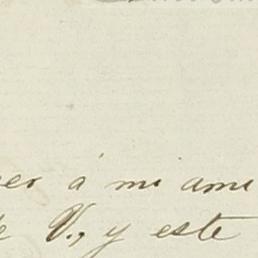 er á mi ami
e V., y este